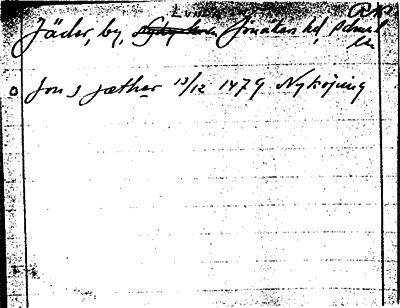 Lunda
Jäder, by, Jönåkers hd, Södml
län
Jon j jæther 13/12 1479 Nyköping